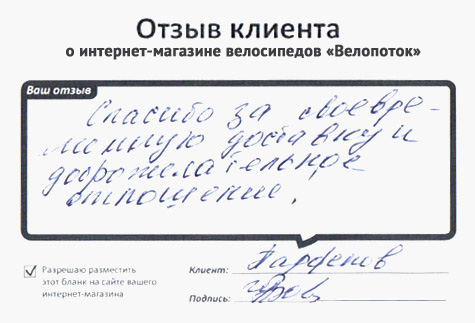 Отзыв клиента
о интернет-магазине велосипедов «Велопоток»
Ваш отзыв
Спасибо за своевре-
менную доставку и
доброжелательное
отношение!
Разрешаю разместить
этот бланк на сайте вашего
интернет-магазина
Клиент: Парфенов
Подпись: